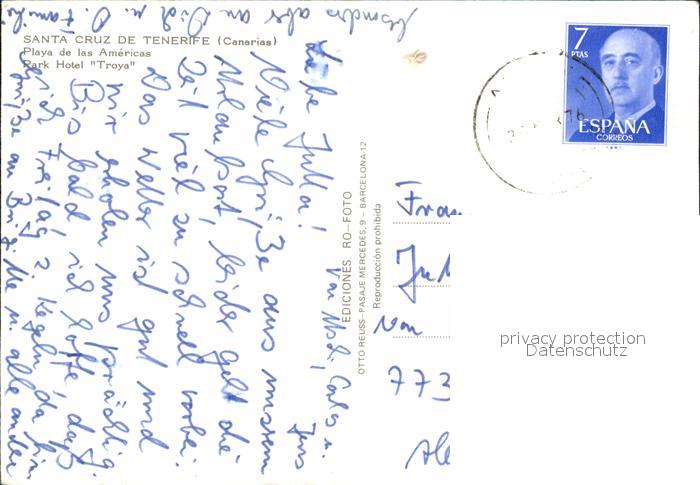 SANTA CRUZ DE TENERIFE (Canarias)
Playa de las Américas
Park Hotel "Troya"
Liebe Jutta!
Viele Grüße aus unserem
Urlaubsort, leider geht die
Zeit viel zu schnell vorbei.
Das Wetter ist gut und
wir erholen uns prächtig.
Bis bald ich hoffe, daß
Freitag z. Kegeln da bin
Grüße an u. alle anderen
besonders aber an Dich u. D. Familie
von Carlos u.
Jens
EDICIONES RO-FOTO
OTTO REUSS-PASAJE MERCEDES, 9 - BARCELONA-12
Reproducción prohibida
7
PTAS
ESPAÑA
CORREOS
76
Frau
von
773
privacy protection
Datenschutz